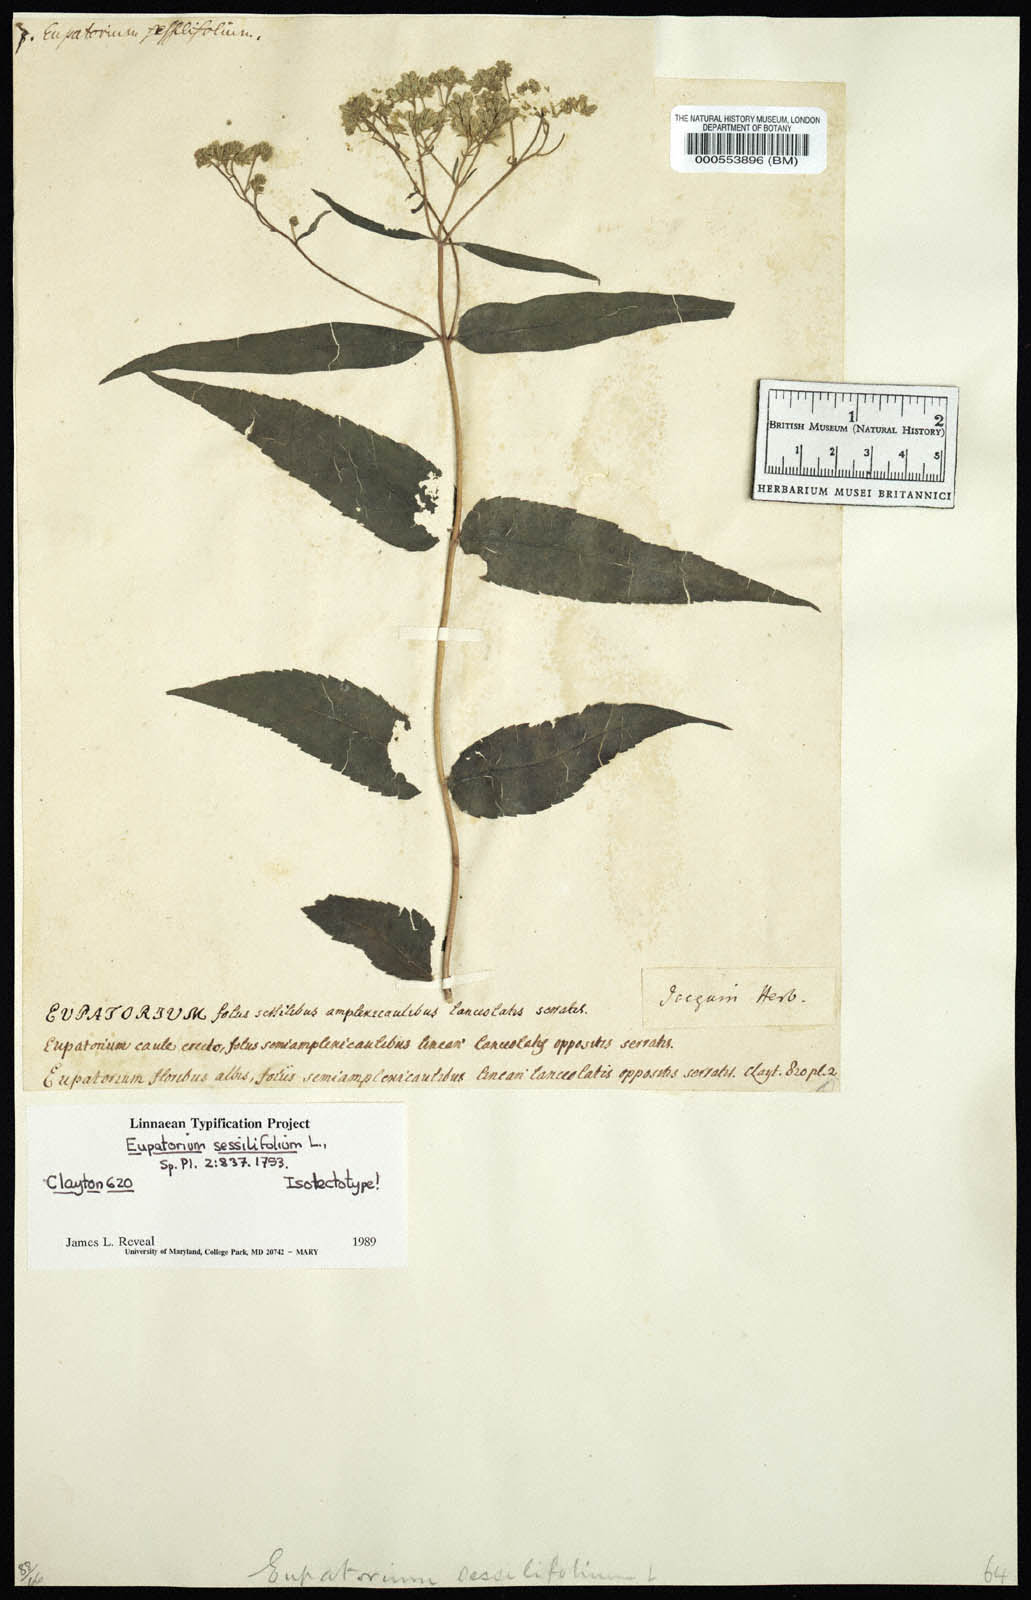 7. Eupatorium sessilifolium.
THE NATURAL HISTORY MUSEUM, LONDON
DEPARTMENT OF BOTANY
000553896 (BM)
1 2
BRITISH MUSEUM (NATURAL HISTORY)
1 2 3 4 5
HERBARIUM MUSEI BRITANNICI
Jacquin Herb.
EUPATORIUM foliis sessilibus amplexicaulibus lanceolatis serratis.
Eupatorium caule erecto, foliis semiamplexicaulibus lineari lanceolatis oppositis serratis.
Eupatorium floribus albis, foliis semiamplexicaulibus lineari lanceolatis oppositis serratis. Clayt. 620 pl. 2
Linnaean Typification Project
Eupatorium sessilifolium L.,
Sp. Pl. 2:837. 1753.
Clayton 620 Isolectotype!
James L. Reveal 1989
University of Maryland, College Park, MD 20742 – MARY
Eupatorium sessilifolium L
64